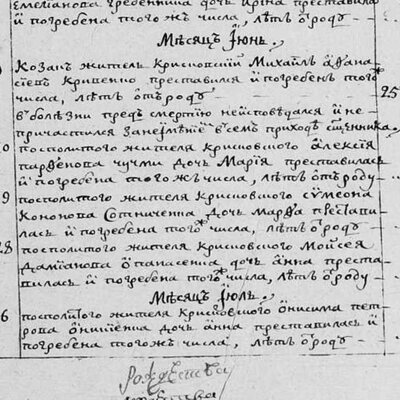 емелианова гребенника дочь Ирина преставила
и погребена того жъ числа, лѣтъ ѿ роду
Мѣсяцъ Іюнь.
Козакъ житель крисковскій Михаилъ аѳана
сіевъ кривенко преставился и погребенъ того
числа, лѣтъ ѿ роду
25
в болѣзни предъ смертію неисповѣдался и не
причастился за неимѣніе в семъ приходѣ сщенника
0 посполитого жителя крисковского алексія
парѳенова чучми дочь Марія преставилась
и погребена того жъ числа, лѣтъ ѿ роду
9 посполитого жителя крисковского сумеона
кононова сотниченка дочь Марѳа престави
лась и погребена того числа, лѣтъ ѿ роду
28 посполитого жителя крисковского Моисея
даміанова опанасенка дочь анна преста
вилась и погребена того числа, лѣтъ ѿ роду
Мѣсяцъ Іюль.
6 посполитого жителя крисковского онисима пет
рова дочь анна преставилась и
погребена того жъ числа, лѣтъ ѿ роду
Рождества